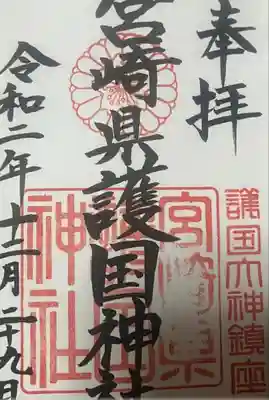 奉拝
護国大神鎮座
宮崎県護国神社
宮崎県護国神社
令和二年十二月二十九日